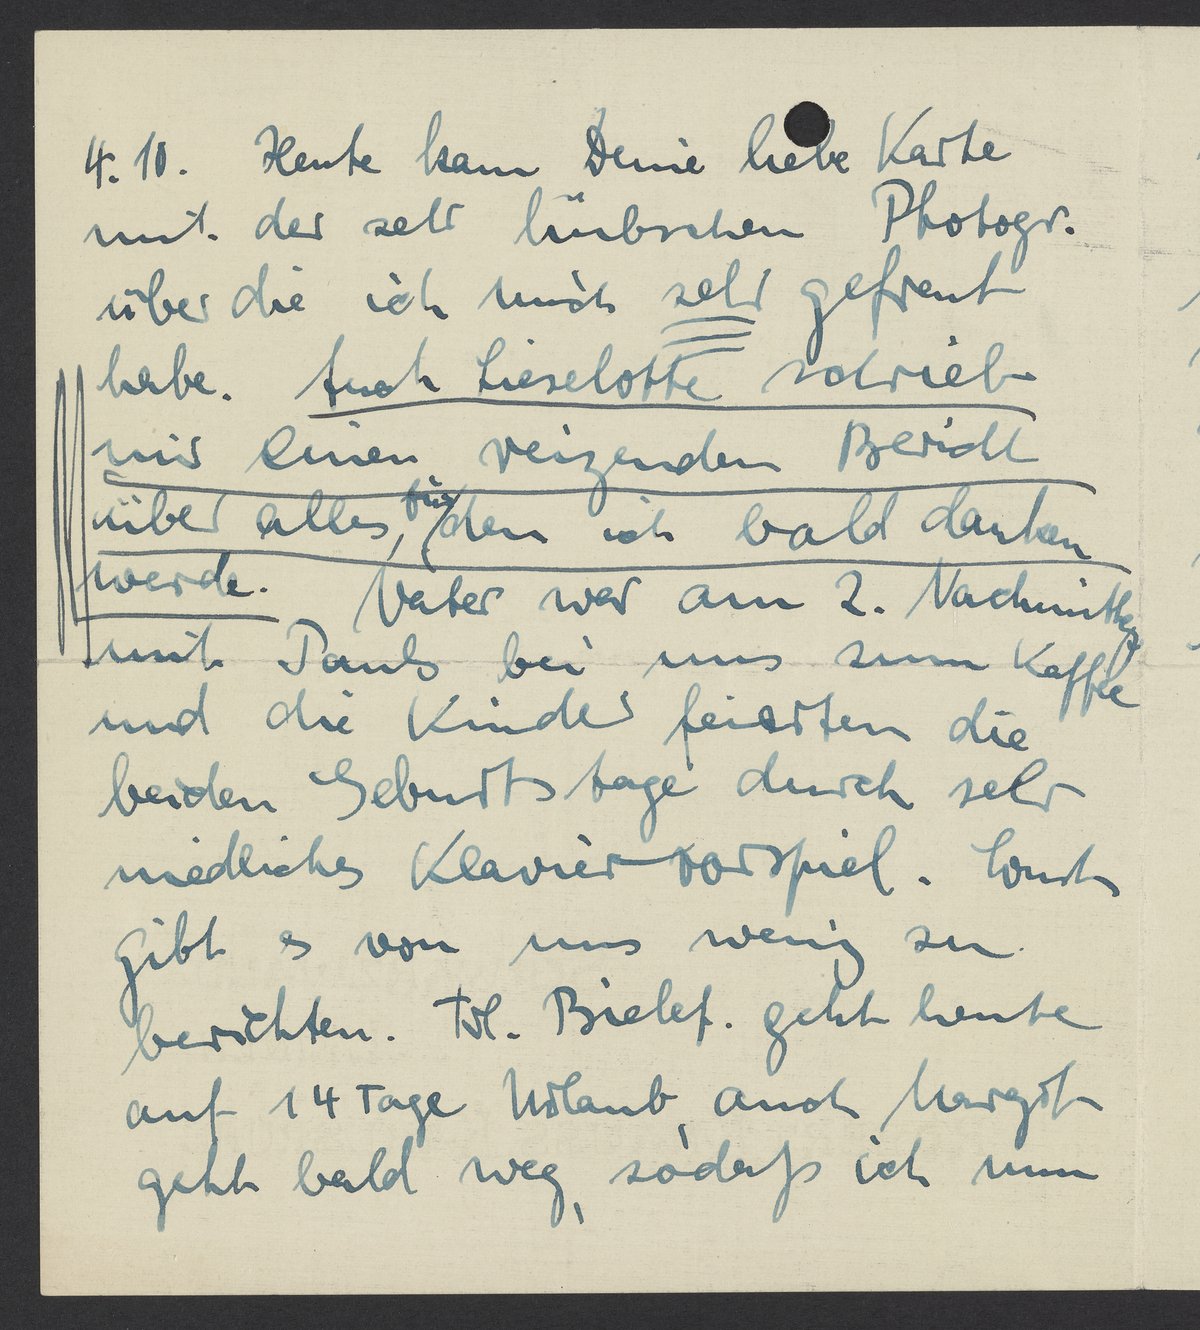 4.10. Heute kam Deine liebe Karte
mit der sehr hübschen Photogr.
über die ich mich sehr gefreut
habe. Auch Lieselotte schrieb
mir einen reizenden Bericht
über alles, für den ich bald danken
werde. Vater war am 2. Nachmittag
mit Pauls bei uns zum Kaffee
und die Kinder feierten die
beiden Geburtstage durch sehr
niedliches Klaviervorspiel. Sonst
gibt es von uns wenig zu
berichten. Frl. Bielef. geht heute
auf 14 Tage Urlaub, auch Margrit
geht bald weg, sodaß ich nun